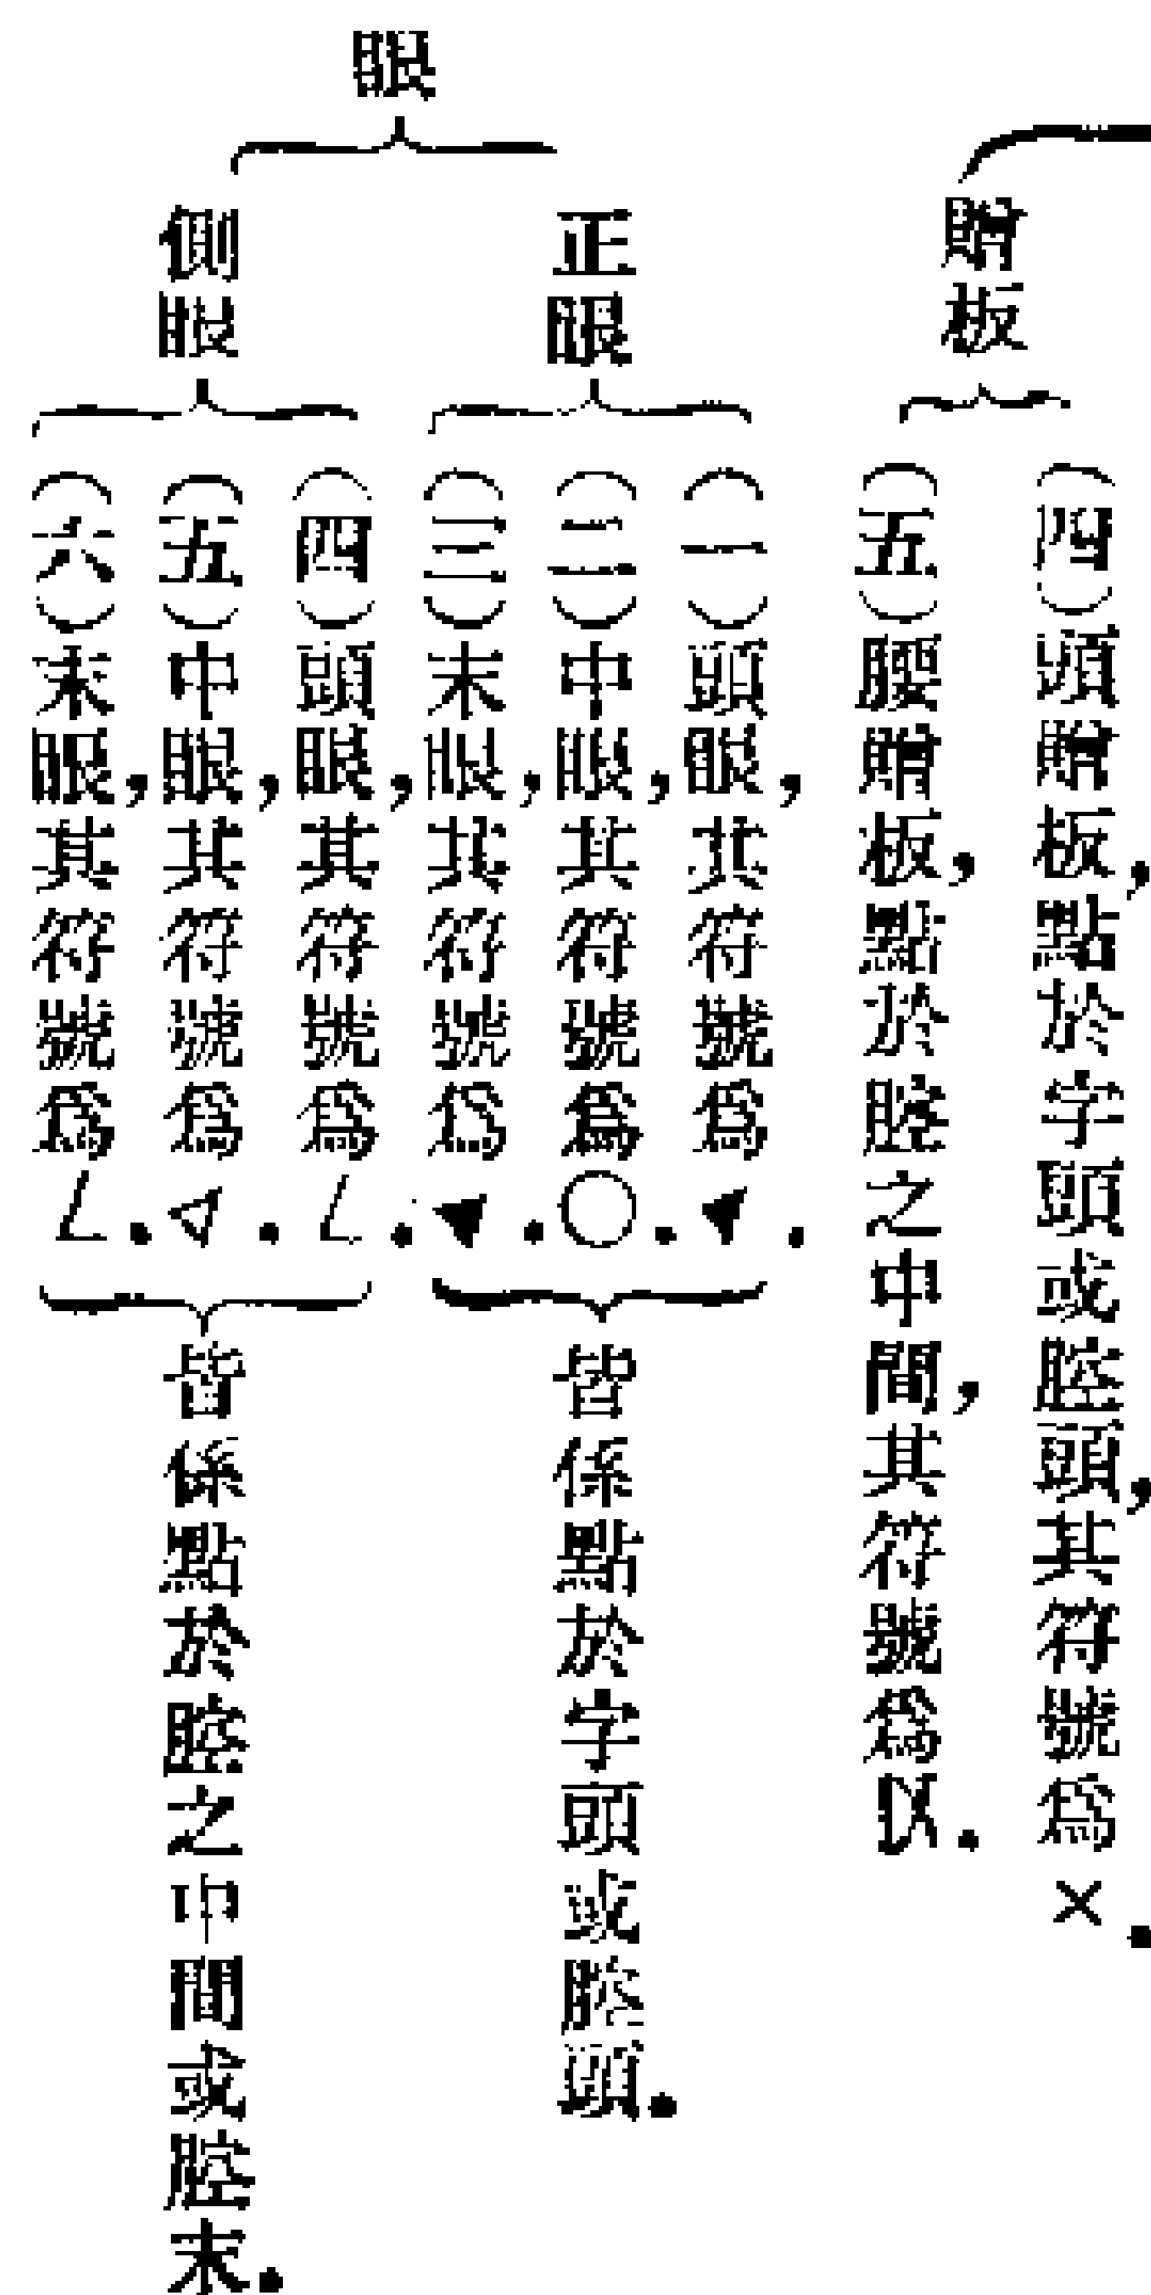 贈板
(四)頭贈板,點於字頭或腔頭,其符號爲×.
(五)腰贈板,點於腔之中間,其符號爲
眼
正眼
(一)頭眼,其符號爲◤.
(二)中眼,其符號爲○.
(三)末眼,其符號爲◥.
皆係點於字頭或腔頭.
側眼
(四)頭眼,其符號爲ㄥ.
(五)中眼,其符號爲◁.
(六)末眼,其符號爲ㄥ.
皆係點於腔之中間或腔末.